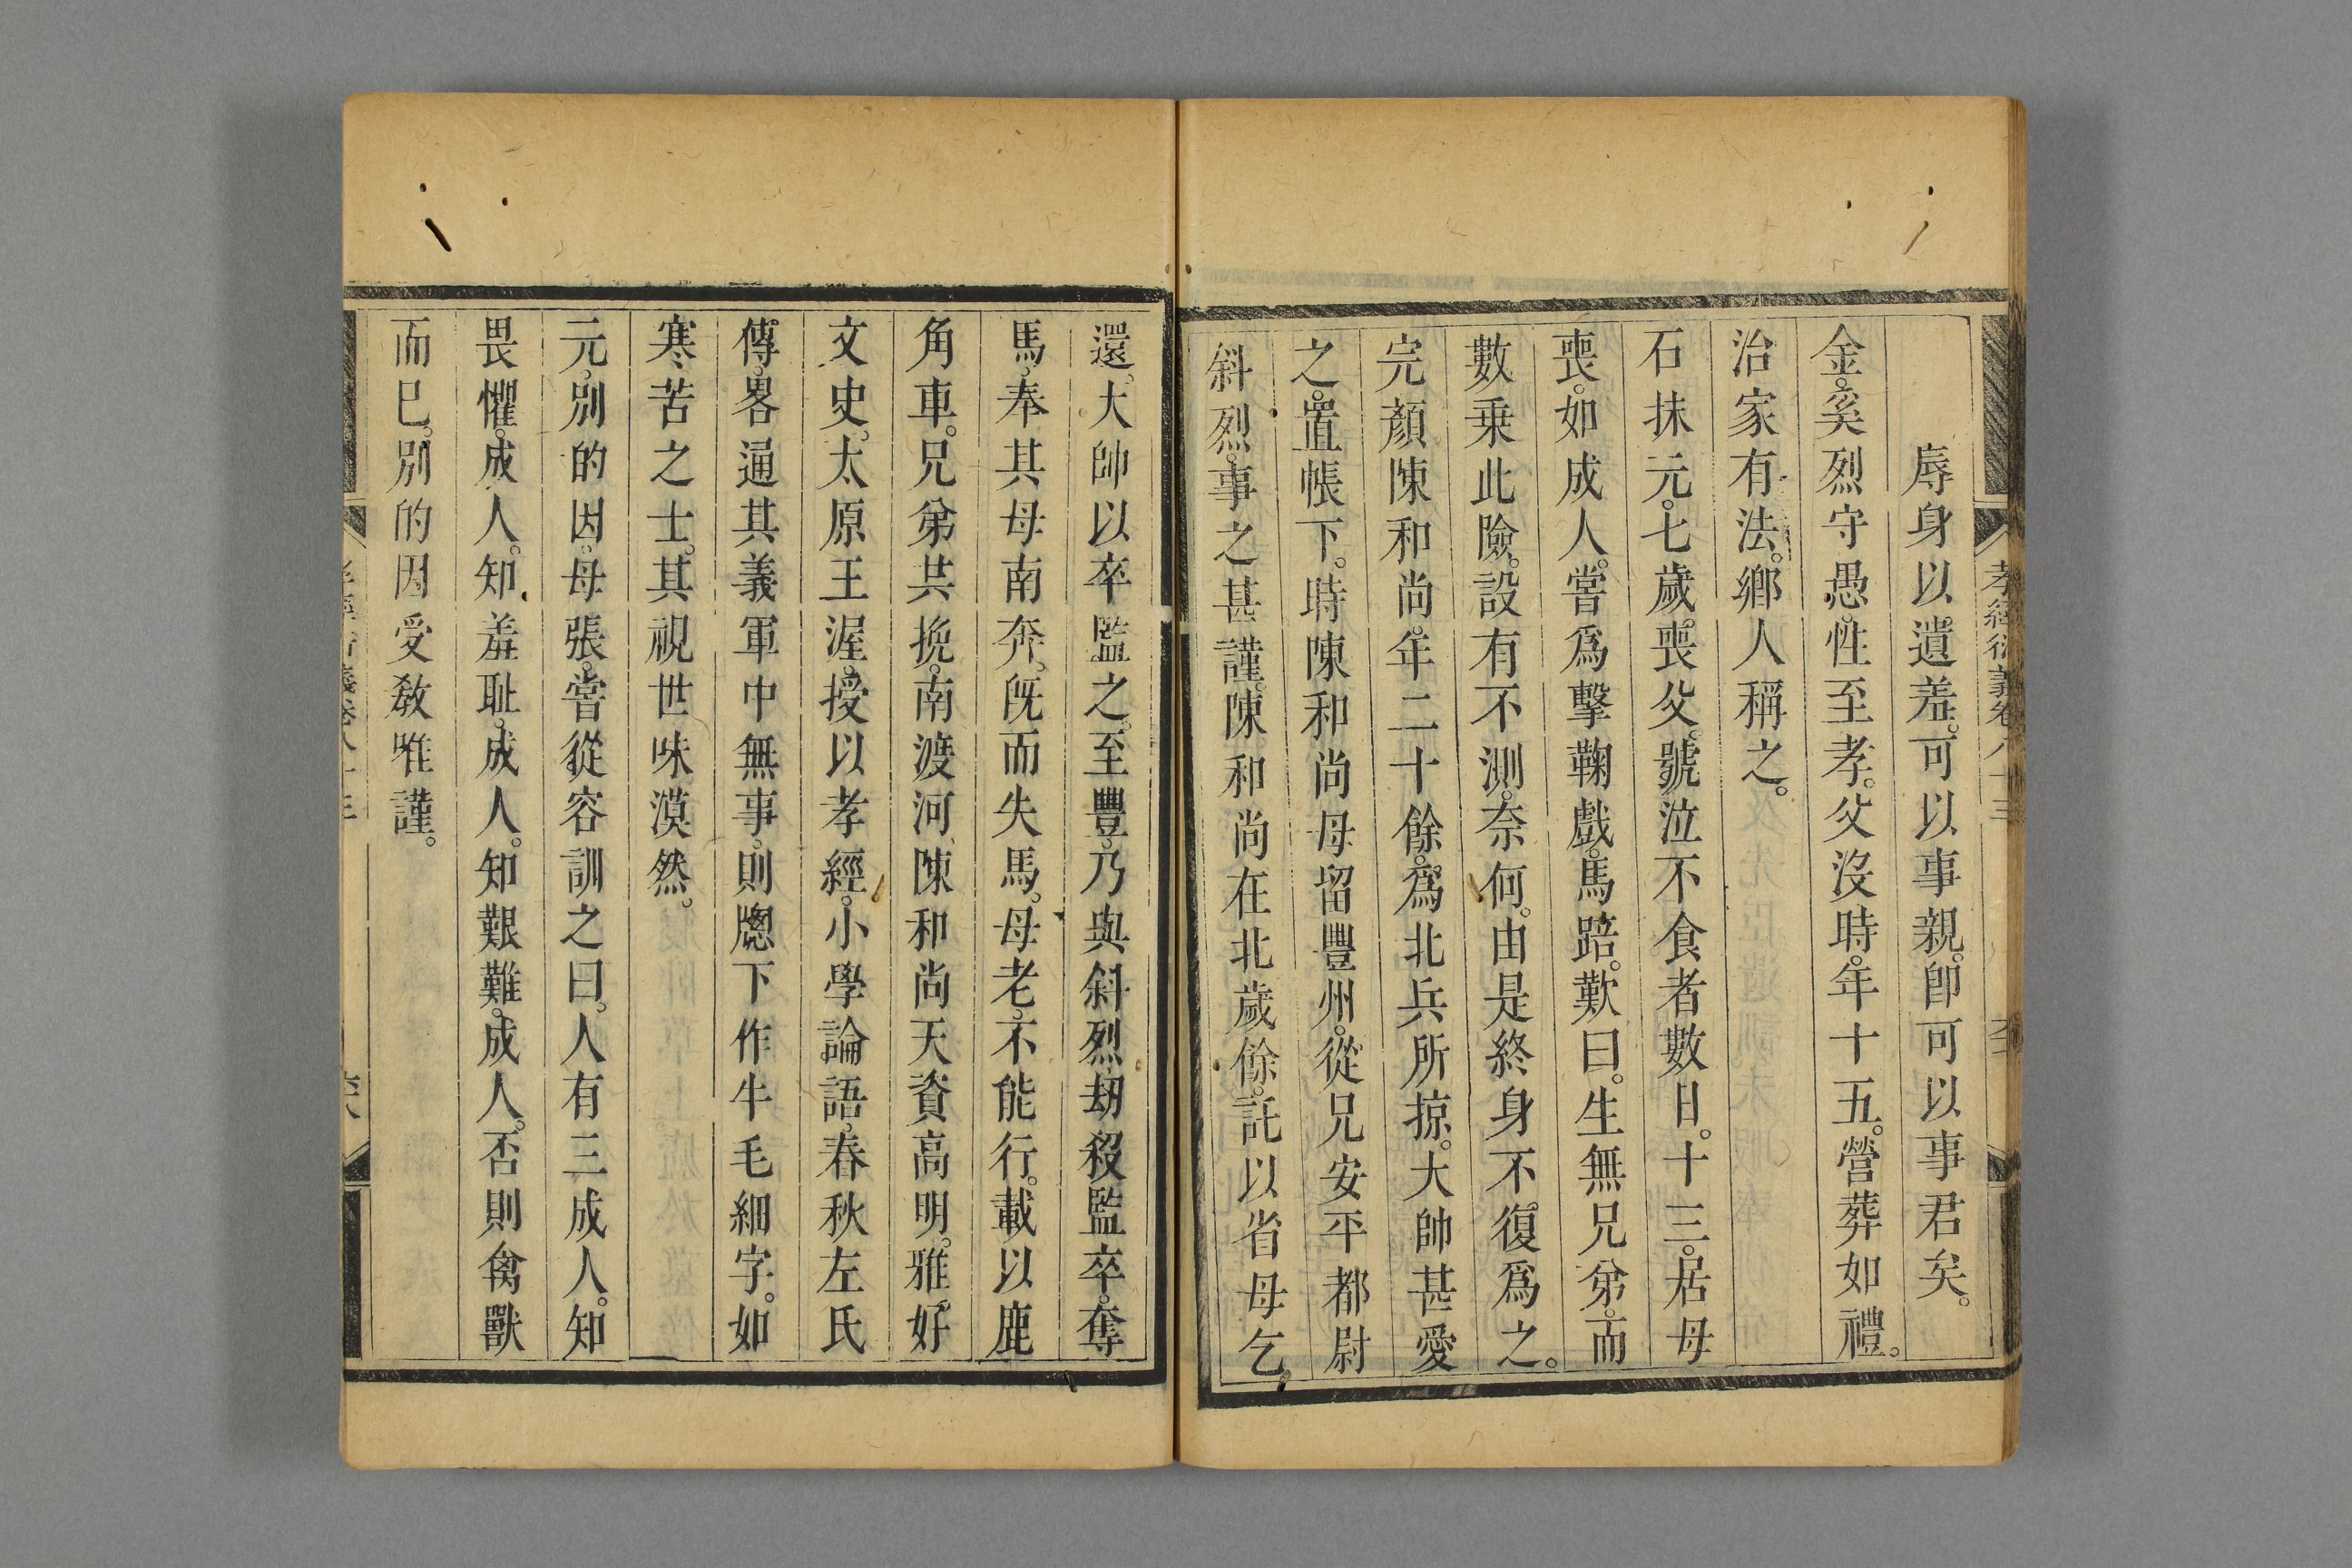 孝經衍義卷八十三
辱身以遺羞。可以事親。卽可以事君矣。
金。奚烈守愚。性至孝。父沒時。年十五。營葬如禮。
治家有法。鄕人稱之。
石抹元。七歲。喪父。號泣不食者數日。十三。居母
喪。如成人。嘗爲擊鞠戲。馬踣。歎曰。生無兄弟。而
數乗此險。設有不測。奈何。由是終身不復爲之。
完顏陳和尚。年二十餘。爲北兵所掠。大帥甚愛
之。置帳下。時陳和尚母留豐州。從兄安平都尉
斜烈。事之甚謹。陳和尚在北歲餘。託以省母乞
還。大帥以卒監之。至豐。乃與斜烈刼殺監卒。奪
馬。奉其母南奔。旣而失馬。母老。不能行。載以鹿
角車。兄弟共挽。南渡河。陳和尚天資高明。雅好
文史。太原王渥。授以孝經。小學論語。春秋左氏
傳。畧通其義。軍中無事。則牕下作牛毛細字。如
寒苦之士。其視世味漠然。
元。別的因。母張。嘗從容訓之曰。人有三成人。知
畏懼。成人。知羞耻。成人。知艱難。成人。否則禽獸
而已。別的因受敎唯謹。